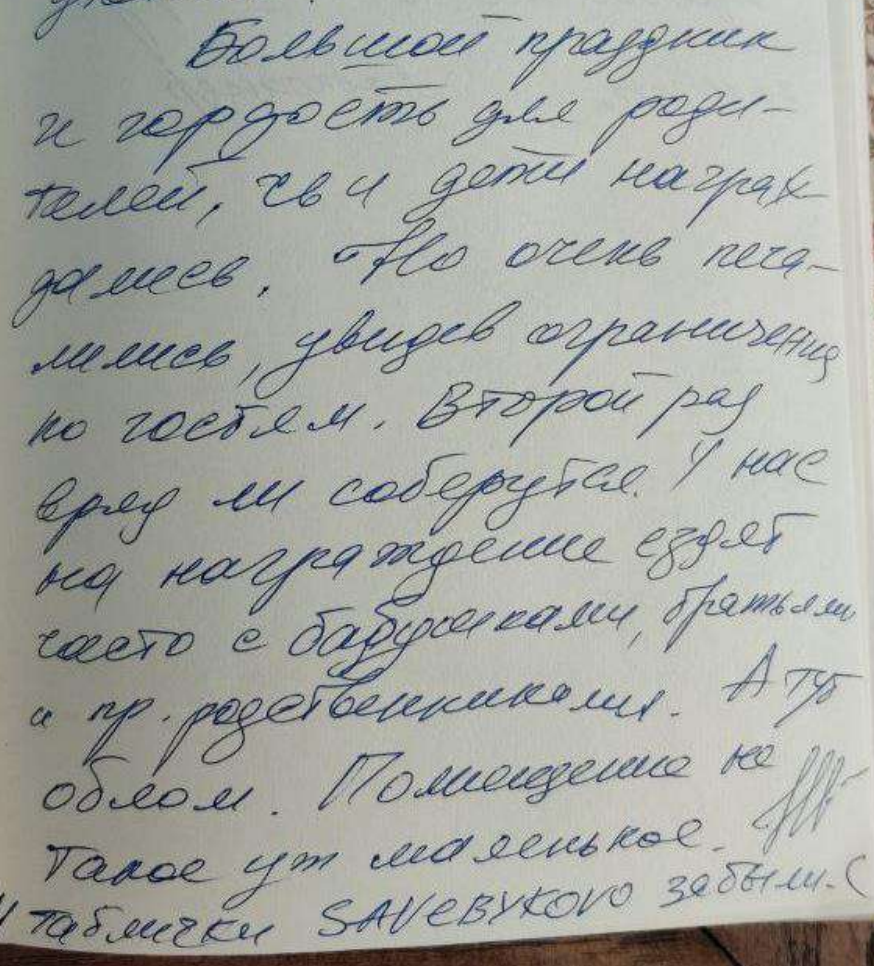 Большой праздник
и гордость для роди-
телей, чьи дети награж
дались. Но очень печа-
лились, увидев ограничения
по гостям. Второй раз
вряд ли соберутся. У нас
на награждение ездят
часто с бабушками, братьями
и пр. родственниками. А тут
облом. Помещение не
такое уж маленькое.
И таблички SAVeBYKOVO забыли. (